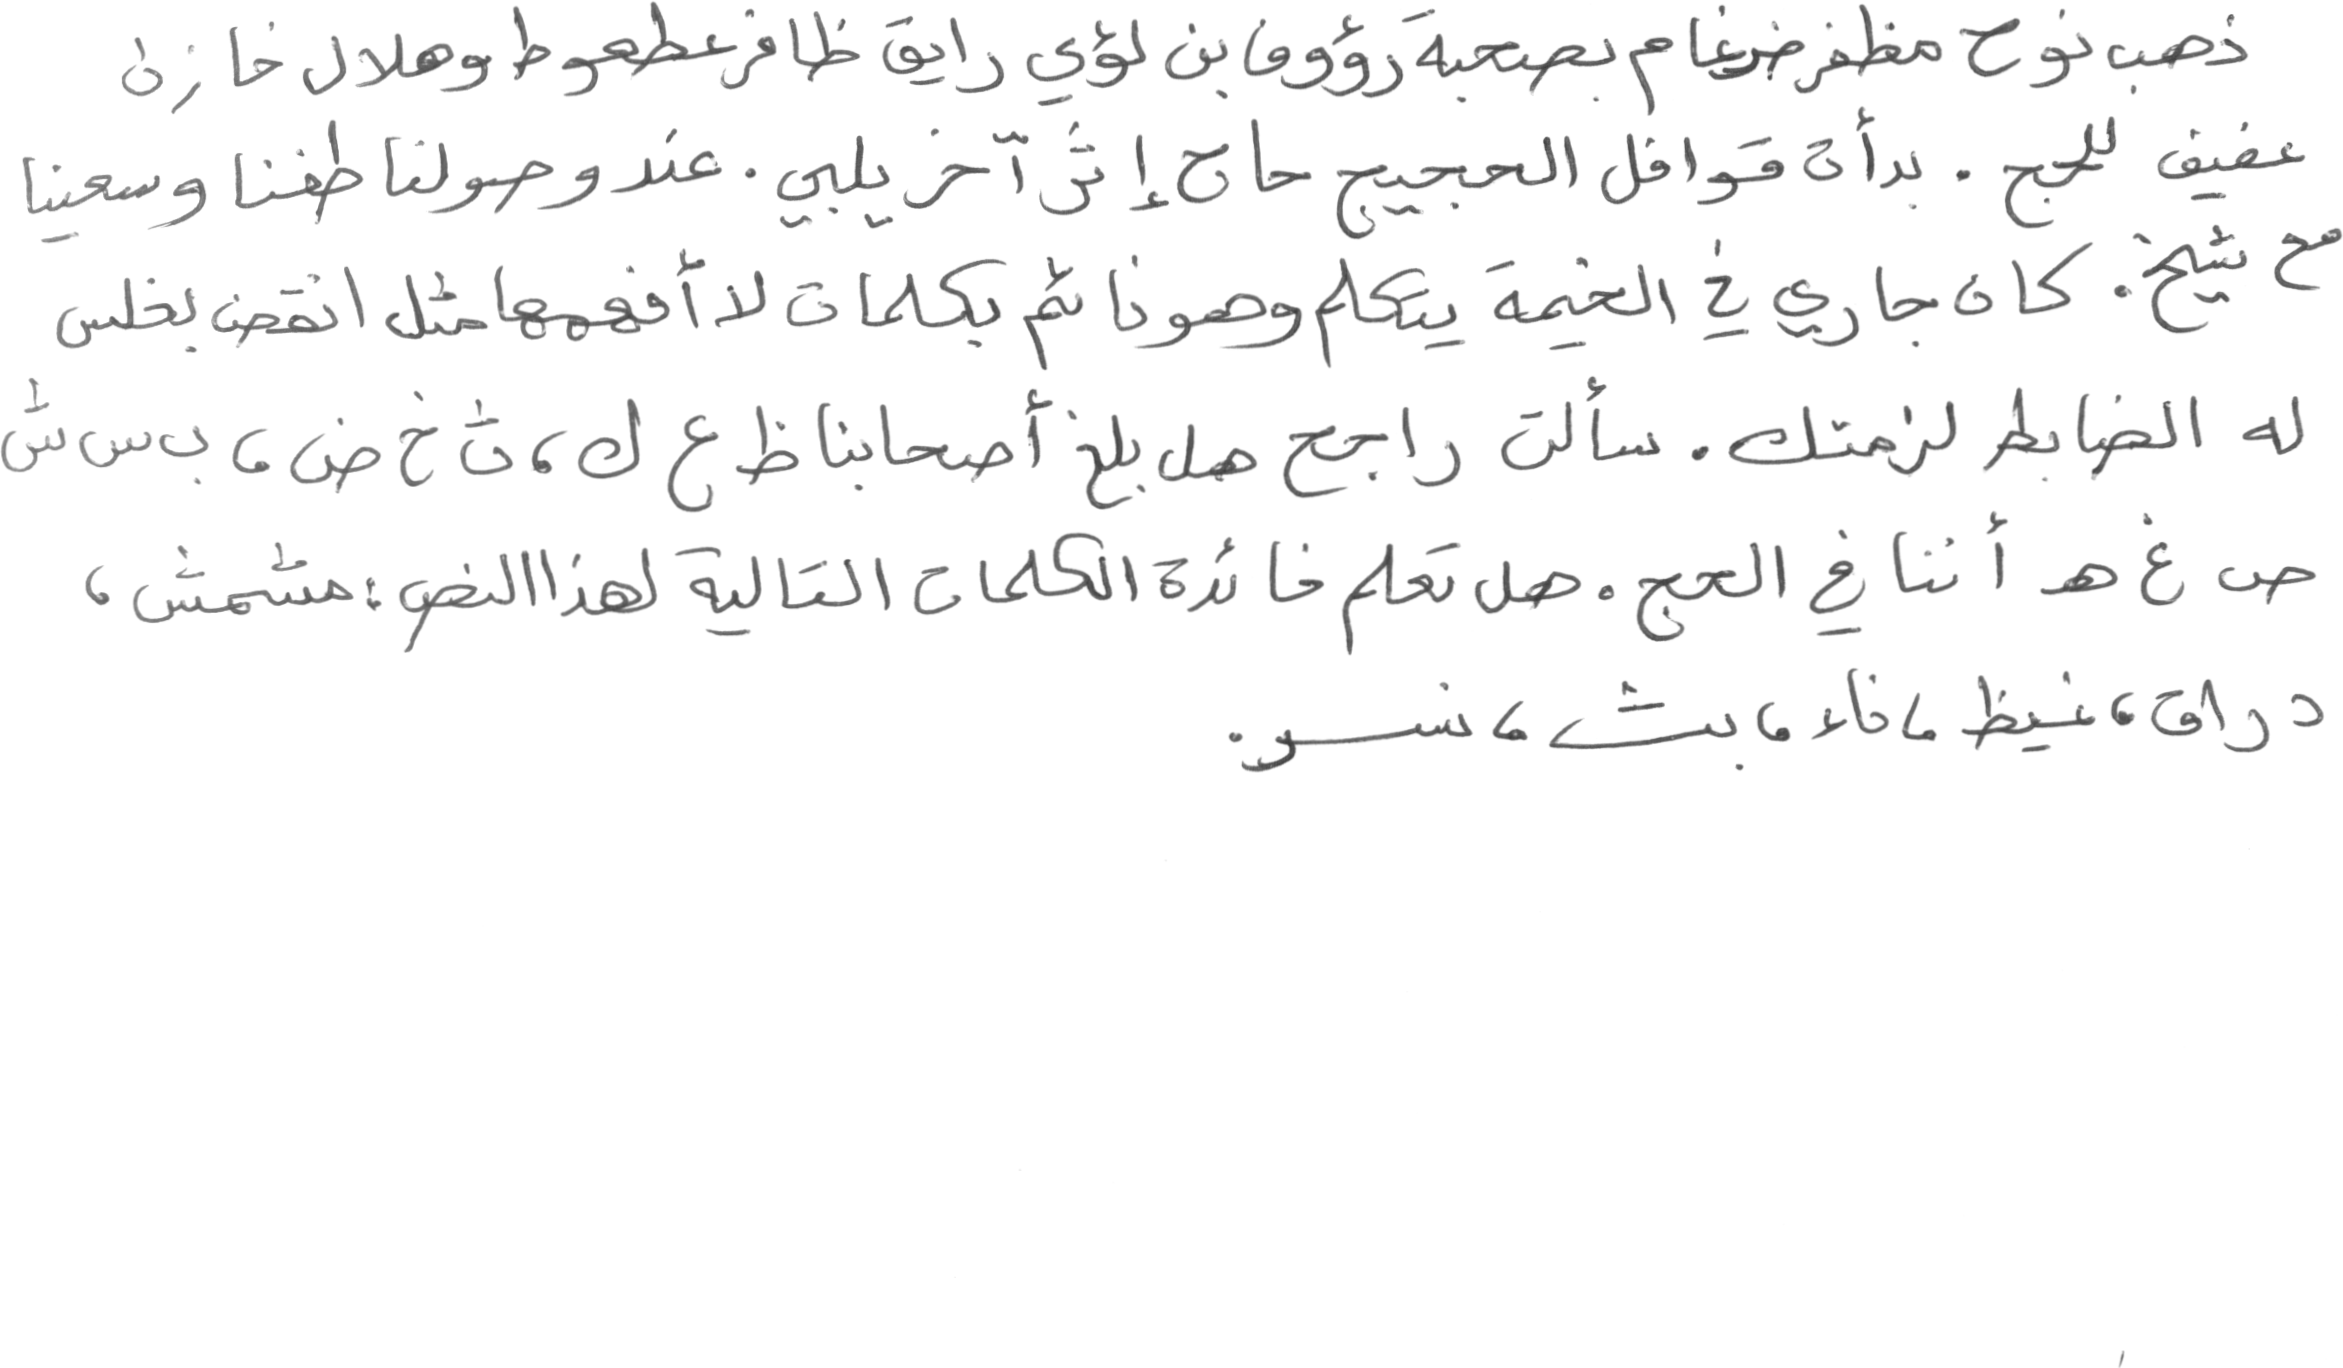 ذهب نوح مظفر ضرغام بصحبة رؤوف بن لؤي رايق ظافر عطعوط وهلال خازن
عفيف للحج . بدأت قوافل الحجيج حاج إثر آخر يلبي . عند وصولنا طفنا وسعينا
مع شيخ . كان جاري في الخيمة يتكلم وهو نائم بكلمات لا أفهمها مثل انقض بخلس
له الضابط لزمتك . سألت راجح هل بلغ أصحابنا ظ ع ك ، ث خ ض ، ب س ش
ص غ هـ أننا في الحج . هل تعلم فائدة الكلمات التالية لهذا النص : مشمش ،
دراق ، غيظ ، ناء ، بث ، نسر .